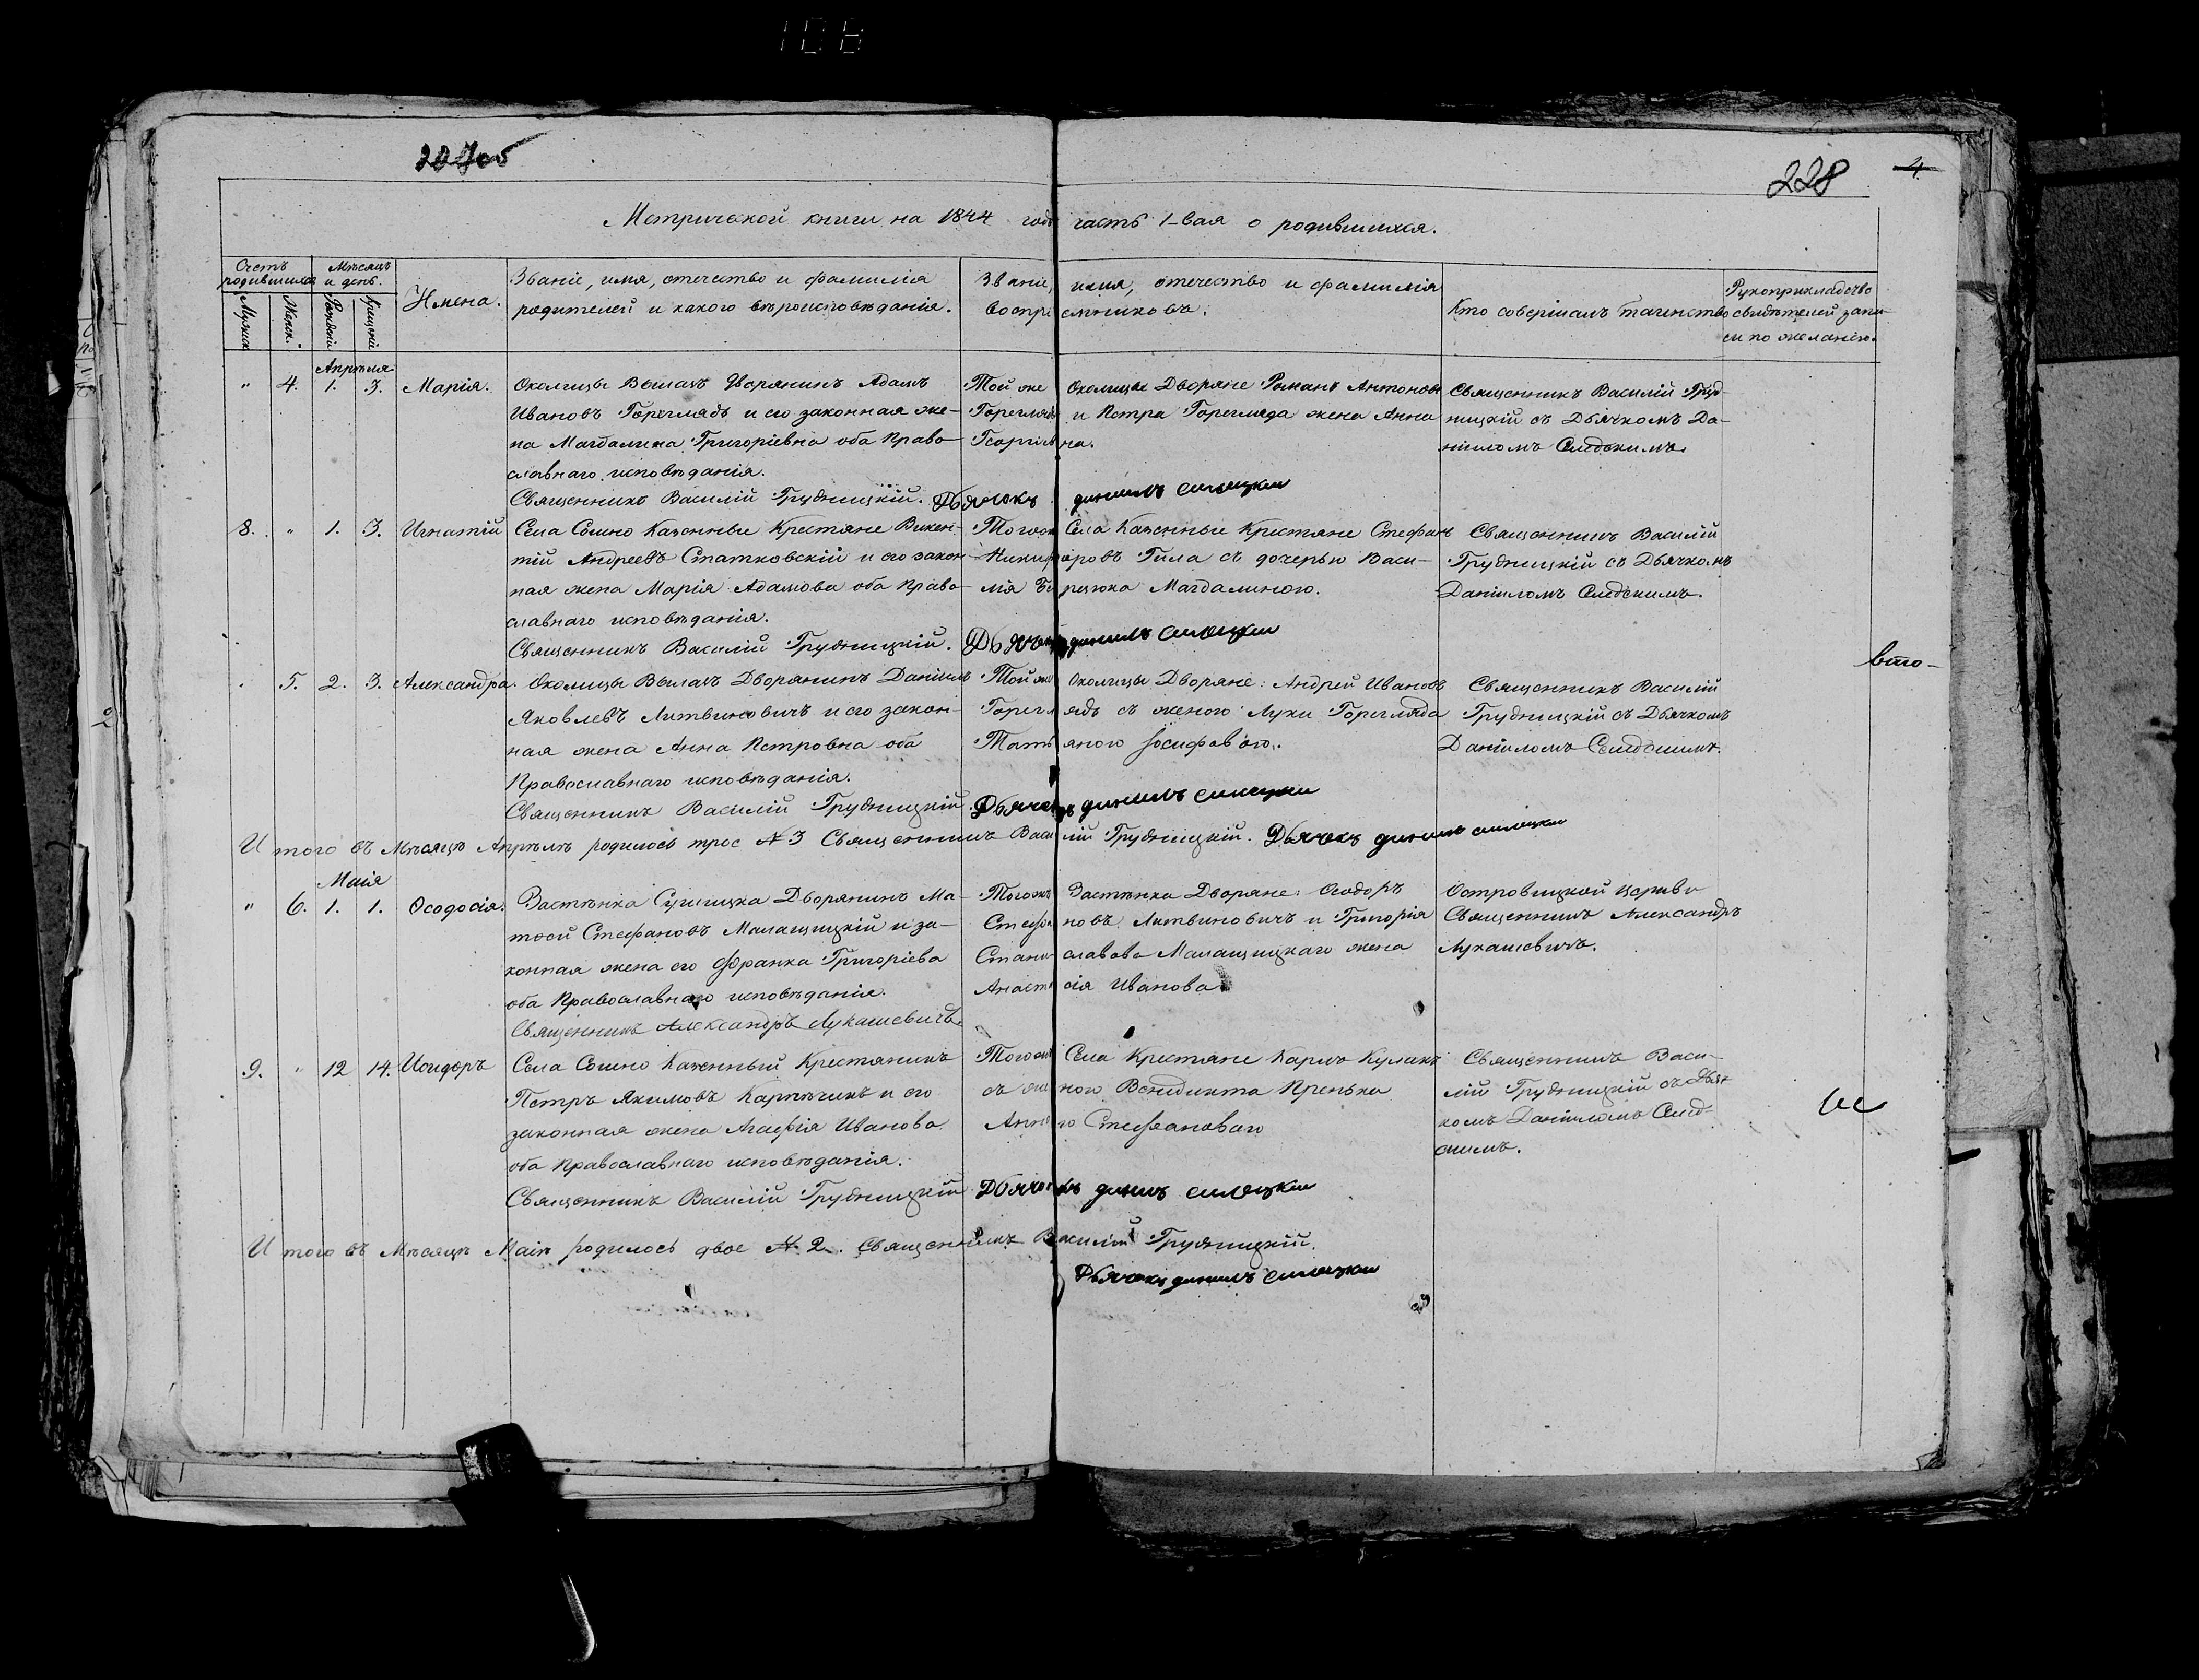 228
4
Метрической книги на 1844 годъ часть 1-вая о родившихся.
Счетъ родившихся
Мѣсяцъ и день.
Имена.
Званіе, имя, отчество и фамилія
родителей и какого вѣроисповѣданія.
Званіе, имя, отчество и фамилія
воспріемниковъ.
Кто совершалъ таинство
Рукоприкладство
свидѣтелей запи-
си по желанію.
Мужск.
Женск.
Рожденія
Крещенія
Апрѣля
" 4. 1. 3. Марія.
Околицы Выгалъ Дворянинъ Адамъ
Ивановъ Гореглядъ и его законная же-
на Магдалина Григоріевна оба Право-
славнаго исповѣданія.
Священникъ Василій Грудницкій. Дьячокъ
Той же Околицы Дворяне Романъ Антоновъ
Гореглядъ и Петра Горегляда жена Анна
Георгіевна.
Священникъ Василій Груд-
ницкій съ Дьячкомъ Да-
ніиломъ
8. " 1. 3. Игнатій
Села Сошно Казенные Крестяне Викен-
тій Андреевъ Статковскій и его закон-
ная жена Марія Адамова оба Право-
славнаго исповѣданія.
Священникъ Василій Грудницкій. Дьячокъ
Тогоже Села Казенные Крестяне Стефанъ
Никифоровъ Гила съ дочерью Васи-
лія Магдалиною.
Священникъ Василій
Грудницкій съ Дьячкомъ
Даніиломъ
вто-
5. 2. 3. Александра.
Околицы Выгалъ Дворянинъ Даніилъ
Яковлевъ Литвиновичъ и его закон-
ная жена Анна Петровна оба
Православнаго исповѣданія.
Священникъ Василій Грудницкій. Дьячокъ
Той же Околицы Дворяне: Андрей Ивановъ
Гореглядъ съ женою Луки Горегляда
Татьяною Іосифовою.
Священникъ Василій
Грудницкій съ Дьячкомъ
Даніиломъ
Итого въ Мѣсяцѣ Апрѣлѣ родилось трое № 3 Священникъ Василій Грудницкій. Дьячокъ
Маія
" 6. 1. 1. Ѳеодосія.
Застѣнка Дворянинъ Ма-
тѳей Стефановъ Малащицкій и за-
конная жена его Франка Григоріева
оба Православнаго исповѣданія.
Священникъ Александръ Лукашевичъ.
Тогоже Застѣнка Дворяне: Ѳеодоръ
Стефановъ Литвиновичъ и Григорія
Станиславова Малащицкаго жена
Анастасія Иванова
Островицкой Церкви
Священникъ Александръ
Лукашевичъ.
9. " 12 14. Исидоръ
Села Сошно Казенный Крестянинъ
Петръ Якимовъ Карпѣчикъ и его
законная жена Агафія Иванова
оба Православнаго исповѣданія.
Священникъ Василій Грудницкій Дьячокъ
Тогоже Села Крестяне Карпъ Куликъ
съ женою Венедикта Пренька
Анною Стефановою
Священникъ Васи-
лій Грудницкій съ Дьяч-
комъ Даніиломъ
Итого въ Мѣсяцѣ Маіѣ родилось двое № 2. Священникъ Василій Грудницкій.
Дьячокъ